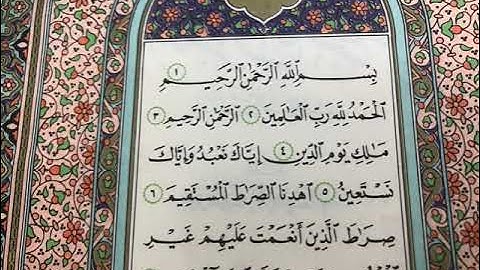 بِسْمِ ٱللَّهِ ٱلرَّحْمَٰنِ ٱلرَّحِيمِ ١
ٱلْحَمْدُ لِلَّهِ رَبِّ ٱلْعَالَمِينَ ٢ ٱلرَّحْمَٰنِ ٱلرَّحِيمِ ٣
مَالِكِ يَوْمِ ٱلدِّينِ ٤ إِيَّاكَ نَعْبُدُ وَإِيَّاكَ
نَسْتَعِينُ ٥ ٱهْدِنَا ٱلصِّرَاطَ ٱلْمُسْتَقِيمَ ٦
صِرَاطَ ٱلَّذِينَ أَنْعَمْتَ عَلَيْهِمْ غَيْرِ